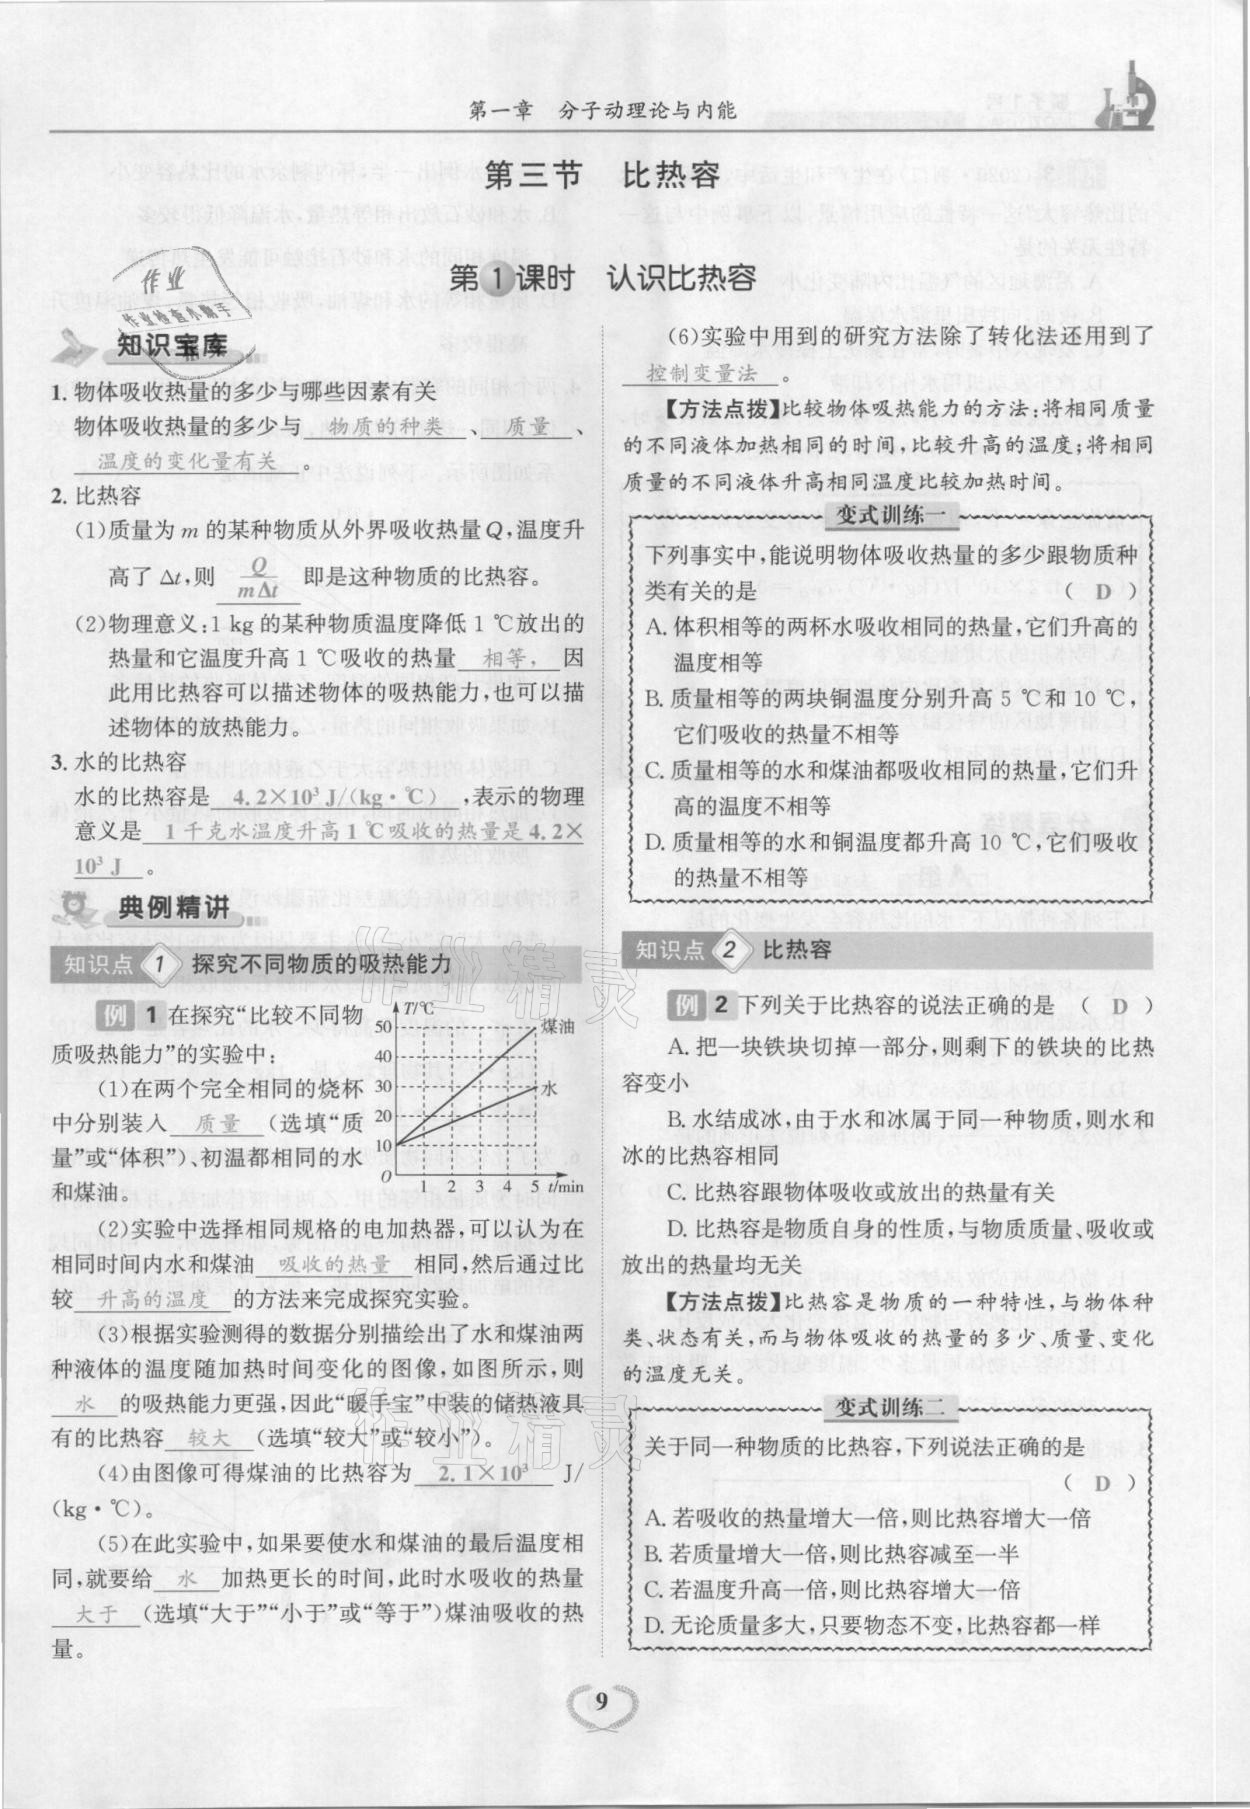 第一章 分子动理论与内能
第三节 比热容
第1课时 认识比热容
作业
作业检查小助手
知识宝库
1. 物体吸收热量的多少与哪些因素有关
物体吸收热量的多少与 物质的种类 、 质量 、
温度的变化量有关 。
2. 比热容
(1)质量为 m 的某种物质从外界吸收热量 Q,温度升
高了 Δt,则 Q/(mΔt) 即是这种物质的比热容。
(2)物理意义:1 kg 的某种物质温度降低 1 ℃放出的
热量和它温度升高 1 ℃吸收的热量 相等, 因
此用比热容可以描述物体的吸热能力,也可以描
述物体的放热能力。
3. 水的比热容
水的比热容是 4.2×10³ J/(kg·℃) ,表示的物理
意义是 1 千克水温度升高 1 ℃吸收的热量是 4.2×
10³ J 。
典例精讲
知识点 1 探究不同物质的吸热能力
例 1 在探究“比较不同物
质吸热能力”的实验中:
(1)在两个完全相同的烧杯
中分别装入 质量 (选填“质
量”或“体积”)、初温都相同的水
和煤油。
T/℃
50
40
30
20
10
O 1 2 3 4 5 t/min
煤油
水
(2)实验中选择相同规格的电加热器,可以认为在
相同时间内水和煤油 吸收的热量 相同,然后通过比
较 升高的温度 的方法来完成探究实验。
(3)根据实验测得的数据分别描绘出了水和煤油两
种液体的温度随加热时间变化的图像,如图所示,则
水 的吸热能力更强,因此“暖手宝”中装的储热液具
有的比热容 较大 (选填“较大”或“较小”)。
(4)由图像可得煤油的比热容为 2.1×10³ J/
(kg·℃)。
(5)在此实验中,如果要使水和煤油的最后温度相
同,就要给 水 加热更长的时间,此时水吸收的热量
大于 (选填“大于”“小于”或“等于”)煤油吸收的热
量。
(6)实验中用到的研究方法除了转化法还用到了
控制变量法 。
【方法点拨】比较物体吸热能力的方法:将相同质量
的不同液体加热相同的时间,比较升高的温度;将相同
质量的不同液体升高相同温度比较加热时间。
变式训练一
下列事实中,能说明物体吸收热量的多少跟物质种
类有关的是 ( D )
A. 体积相等的两杯水吸收相同的热量,它们升高的
温度相等
B. 质量相等的两块铜温度分别升高 5 ℃和 10 ℃,
它们吸收的热量不相等
C. 质量相等的水和煤油都吸收相同的热量,它们升
高的温度不相等
D. 质量相等的水和铜温度都升高 10 ℃,它们吸收
的热量不相等
知识点 2 比热容
例 2 下列关于比热容的说法正确的是 ( D )
A. 把一块铁块切掉一部分,则剩下的铁块的比热
容变小
B. 水结成冰,由于水和冰属于同一种物质,则水和
冰的比热容相同
C. 比热容跟物体吸收或放出的热量有关
D. 比热容是物质自身的性质,与物质质量、吸收或
放出的热量均无关
【方法点拨】比热容是物质的一种特性,与物体种
类、状态有关,而与物体吸收的热量的多少、质量、变化
的温度无关。
变式训练二
关于同一种物质的比热容,下列说法正确的是
( D )
A. 若吸收的热量增大一倍,则比热容增大一倍
B. 若质量增大一倍,则比热容减至一半
C. 若温度升高一倍,则比热容增大一倍
D. 无论质量多大,只要物态不变,比热容都一样
作业精灵
作业精灵
9